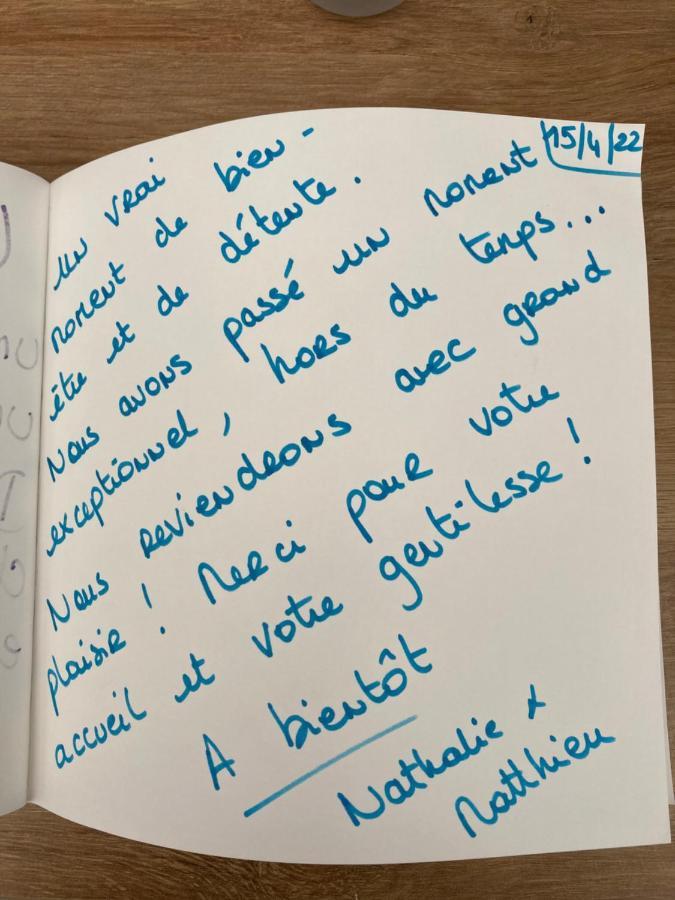 15/4/22
Un vrai
moment de bien-
être et de détente.
Nous avons passé un moment
exceptionnel, hors du temps...
Nous reviendrons avec grand
plaisir ! Merci pour votre
accueil et votre gentilesse !
A bientôt
Nathalie &
Matthieu